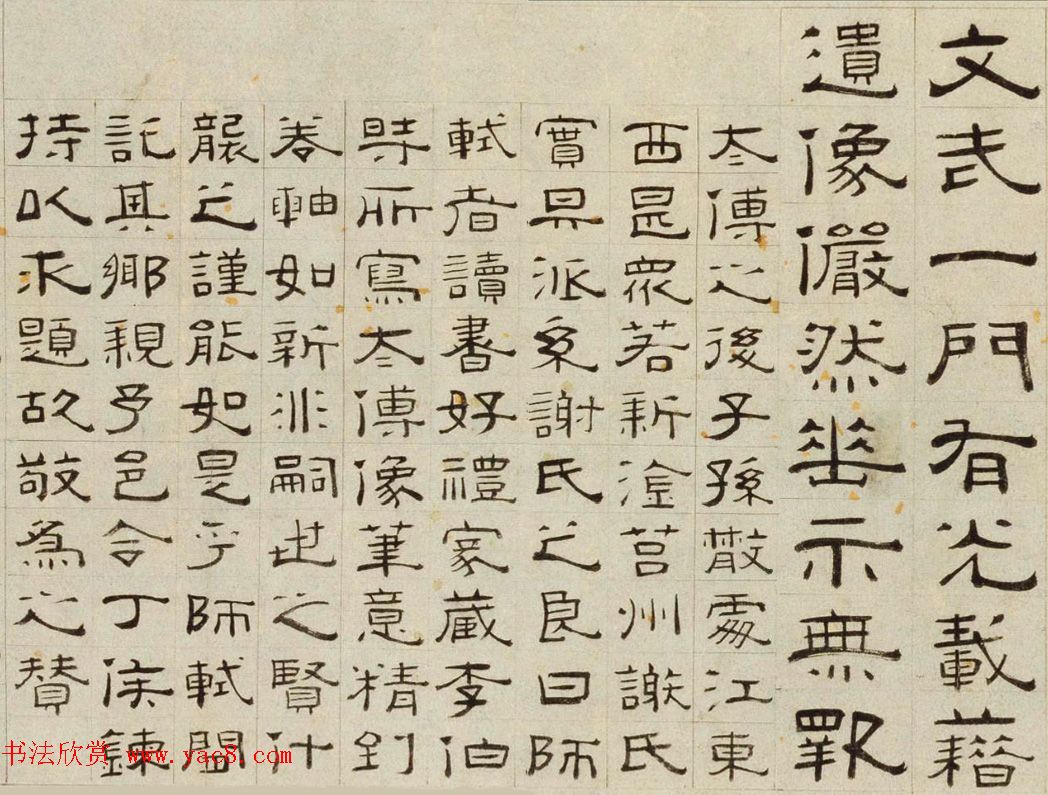 文武一門有光載藉
遺像儼然垂示無斁
太傅之後子孫散處江東
西甚衆若新淦莒州謝氏
實其派系謝氏之良曰師
軾者讀書好禮家藏李伯
時所寫太傅像筆意精到
卷軸如新非嗣世之賢什
襲之謹能如是乎師軾聞
託其鄉親予邑令丁侯鍊
持以求題故敬為之贊
书法欣赏 www.yac8.com